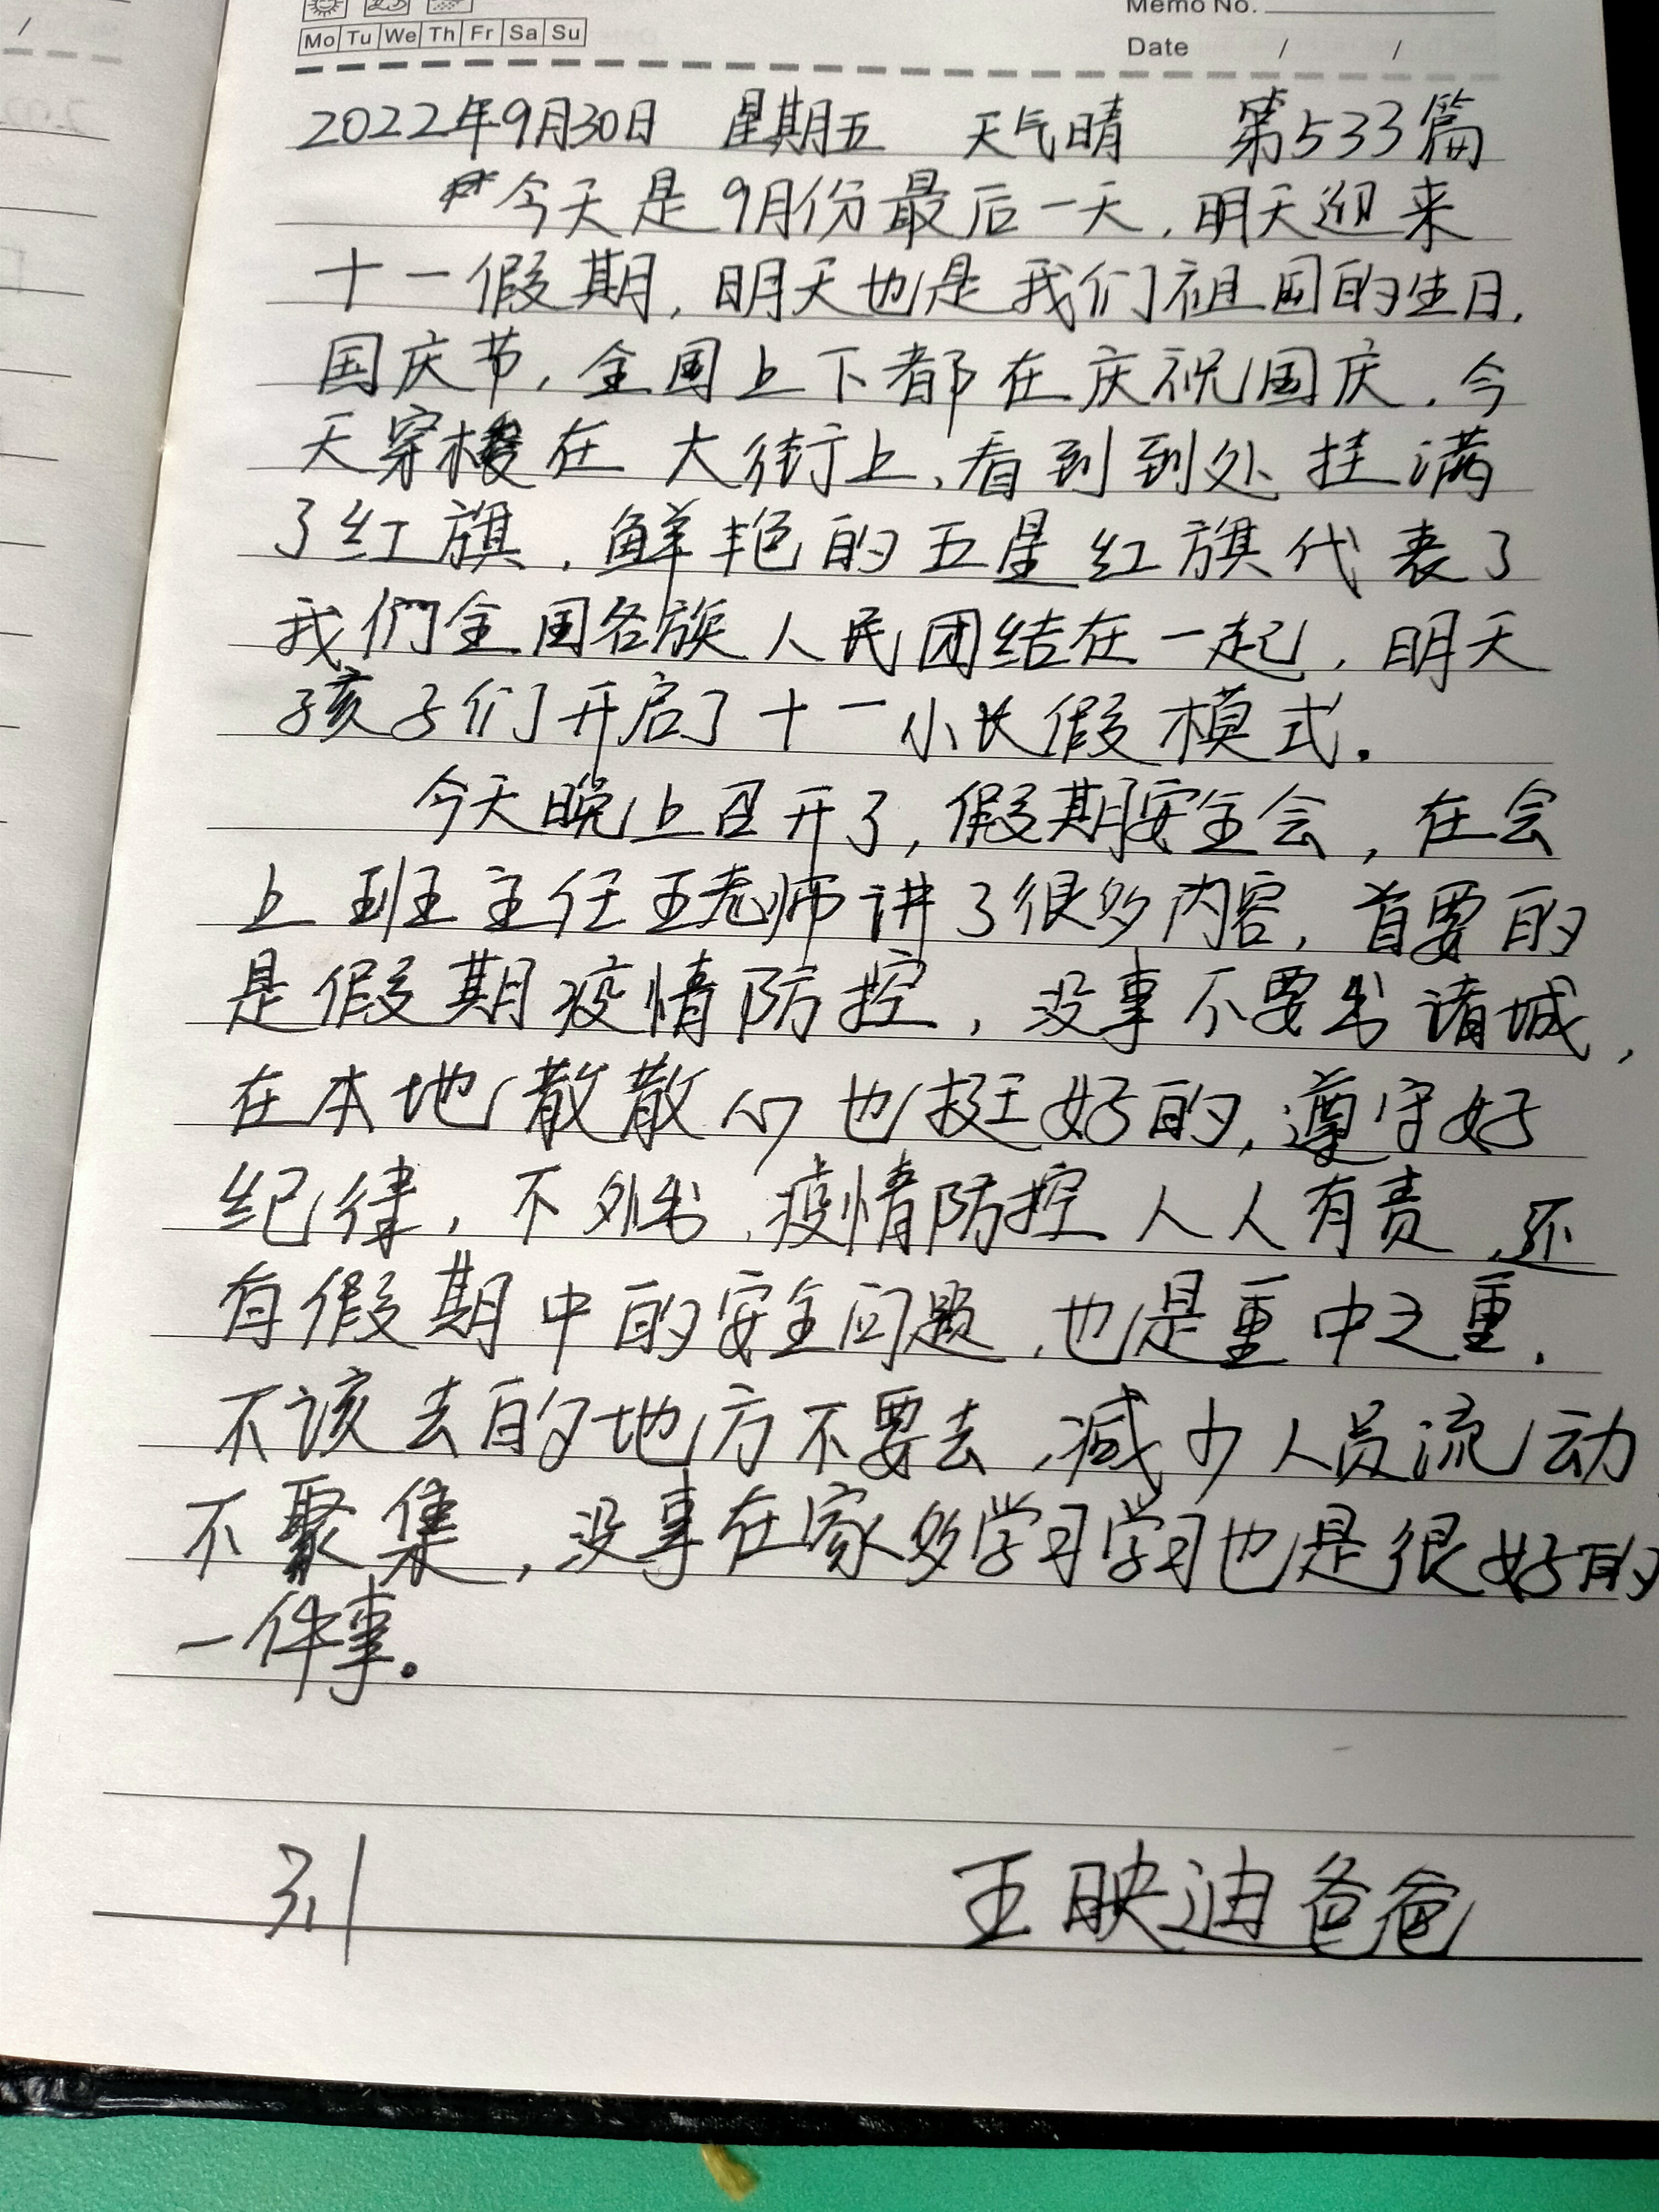 Memo No.
Mo Tu We Th Fr Sa Su
Date / /
2022年9月30日 星期五 天气晴 第533篇
今天是9月份最后一天,明天迎来
十一假期,明天也是我们祖国的生日,
国庆节,全国上下都在庆祝国庆,今
天穿梭在大街上,看到到处挂满
了红旗,鲜艳的五星红旗代表了
我们全国各族人民团结在一起,明天
孩子们开启了十一小长假模式.
今天晚上召开了,假期安全会,在会
上班主任王老师讲了很多内容,首要的
是假期疫情防控,没事不要出诸城,
在本地散散心也挺好的,遵守好
纪律,不外出,疫情防控人人有责,还
有假期中的安全问题,也是重中之重.
不该去的地方不要去,减少人员流动
不聚集,没事在家多学习学习也是很好的
一件事。
王映迪爸爸